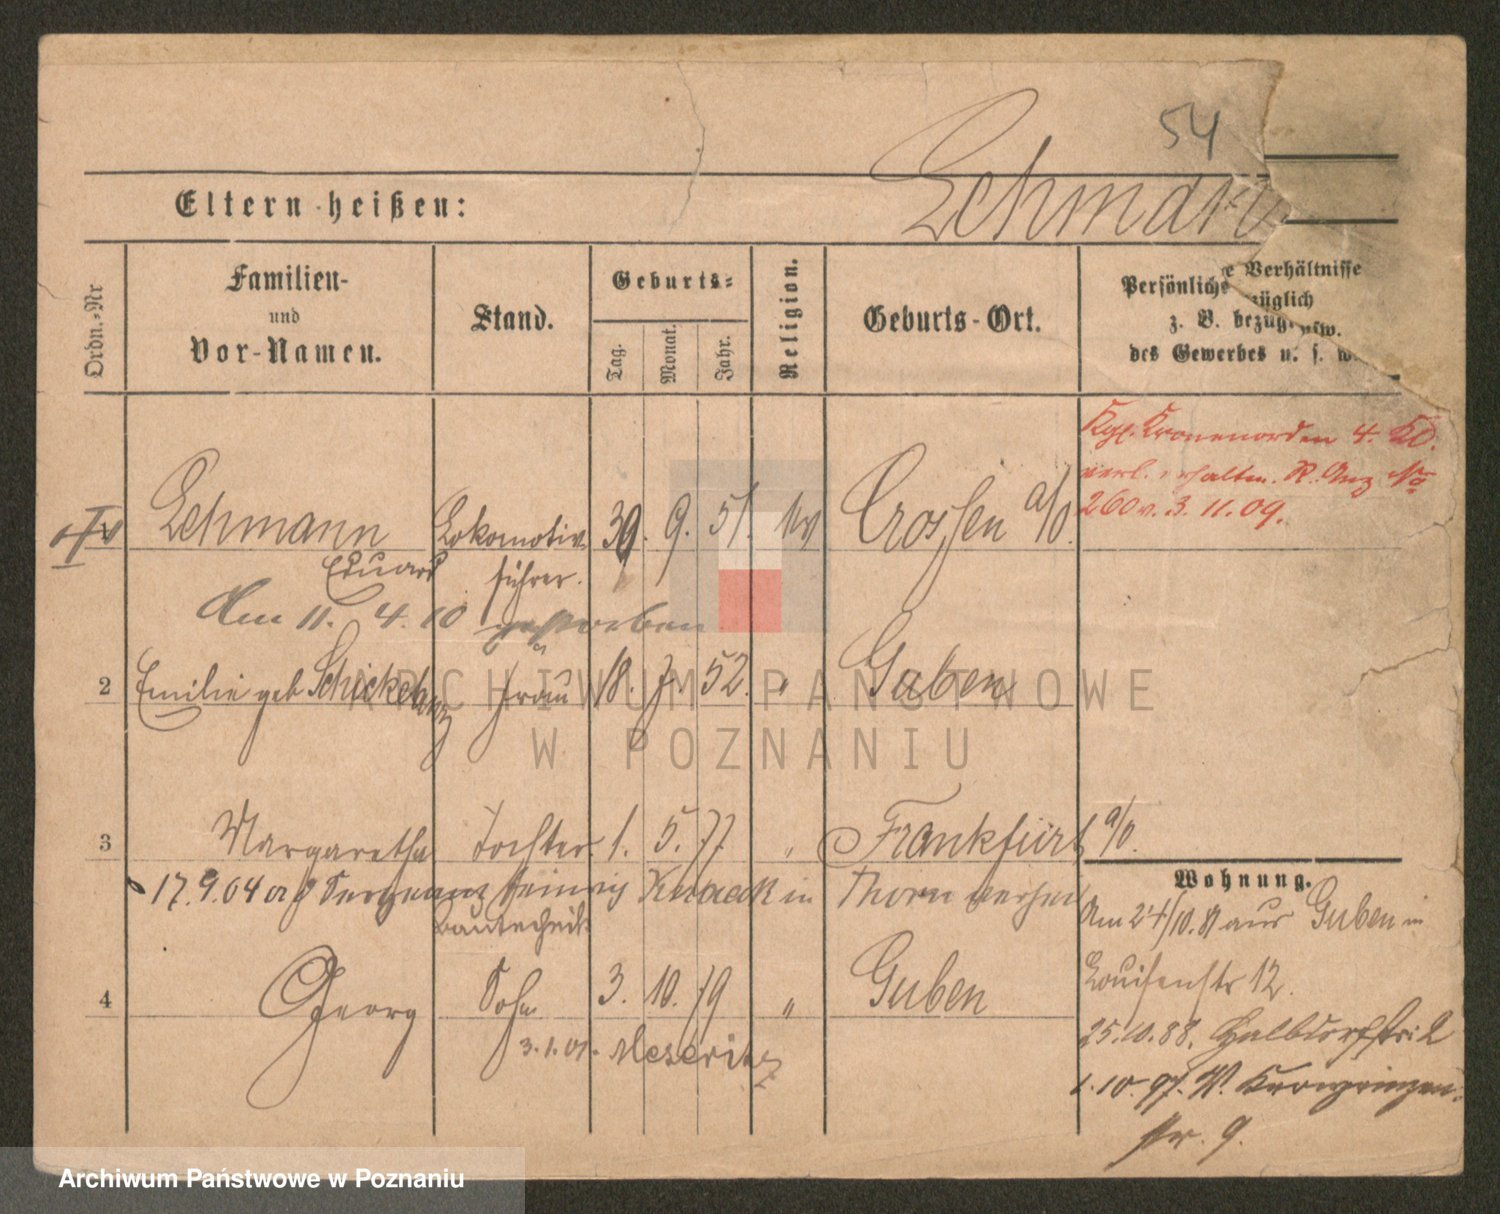 54
Eltern heißen:
Lehmann
Ordn.-Nr
Familien-
und
Vor-Namen.
Stand.
Geburts-
Tag.
Monat.
Jahr.
Religion.
Geburts-Ort.
Persönliche Verhältnisse
z. B. bezüglich
des Gewerbes u. s. w.
Kgl. Kronenorden 4. Kl.
verl. erhalten. R. Anz No
260 v. 3. 11. 09.
Lehmann Lokomotiv 30. 9. 51. ev Crossen a/O.
Eduard führer.
Am 11. 4. 10 gestorben
2 Emilie geb Schickehanz Frau 18. 7. 52. " Guben
3 Margarethe Tochter. 1. 5. 77. " Frankfurt a/O.
17. 9. 04 Sergeant Heinrich Knaack in Thorn verheir
Bautechnik
4 Georg Sohn 3. 10. 79 " Guben
3. 1. 01. Meseritz
Wohnung.
Am 24/10. 81 aus Guben in
Louisenstr 12.
25. 10. 88. Halbdorfstr: 2
1. 10. 97. W. Kronprinzen-
str. 9.
ARCHIWUM PAŃSTWOWE
W POZNANIU
Archiwum Państwowe w Poznaniu